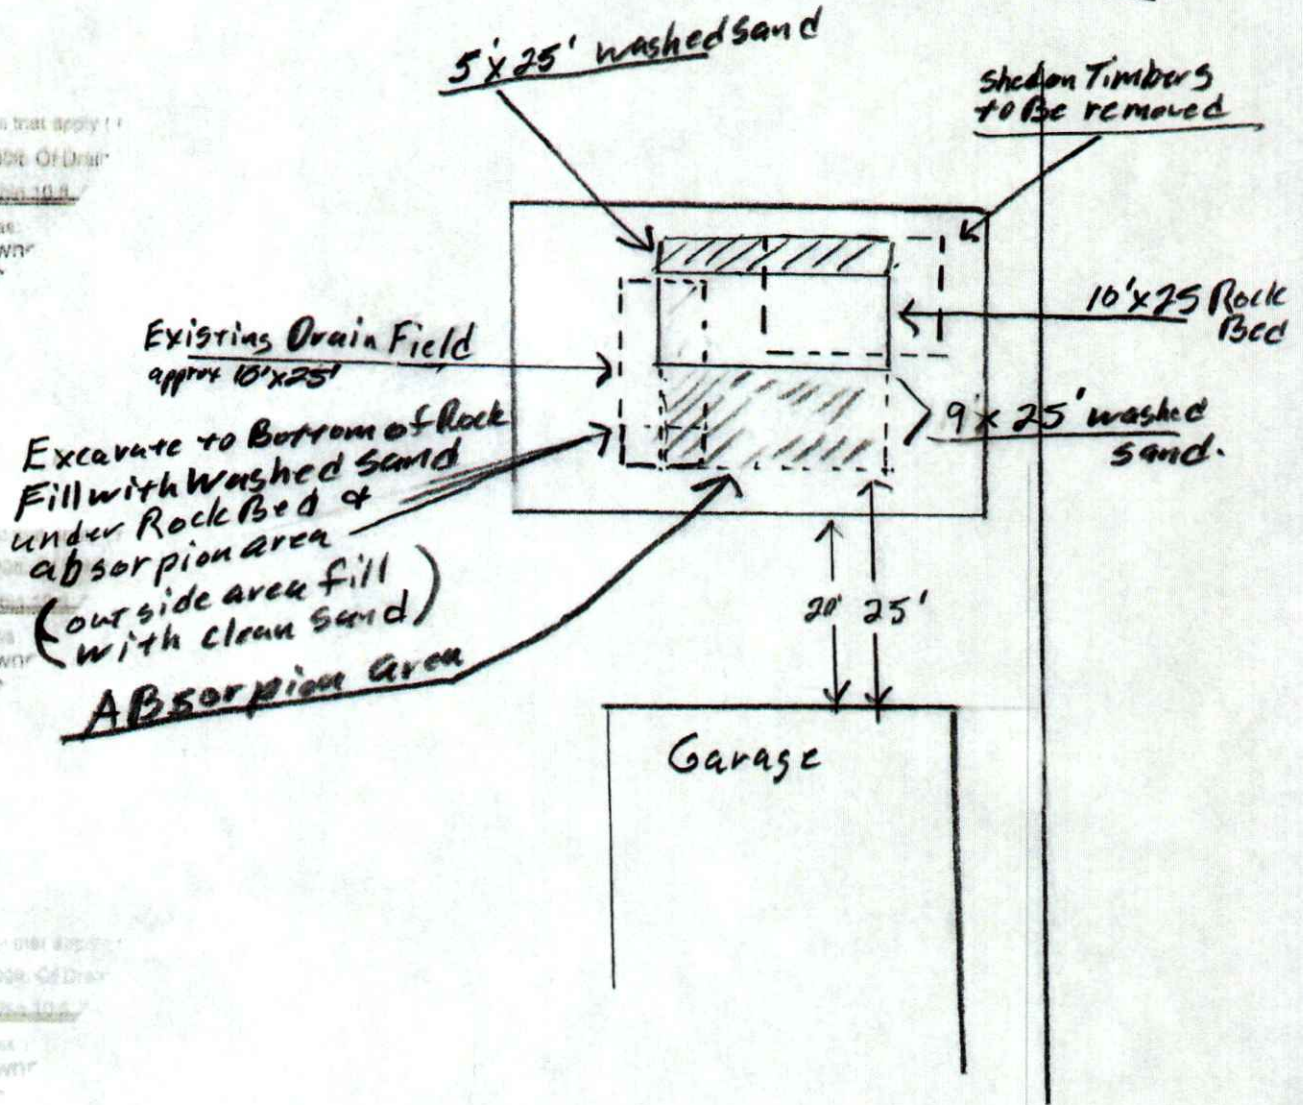 5'x25' washed sand
shed on Timbers
to Be removed
10'x25 Rock
Bed
Existing Drain Field
approx 10'x25'
9'x25' washed
sand.
Excavate to Bottom of Rock
Fill with Washed Sand
under Rock Bed &
absorpion area
(outside area fill
with clean sand)
ABsorpion area
20' 25'
Garage
that apply
Of Drain
10.8
that apply
Of Drain